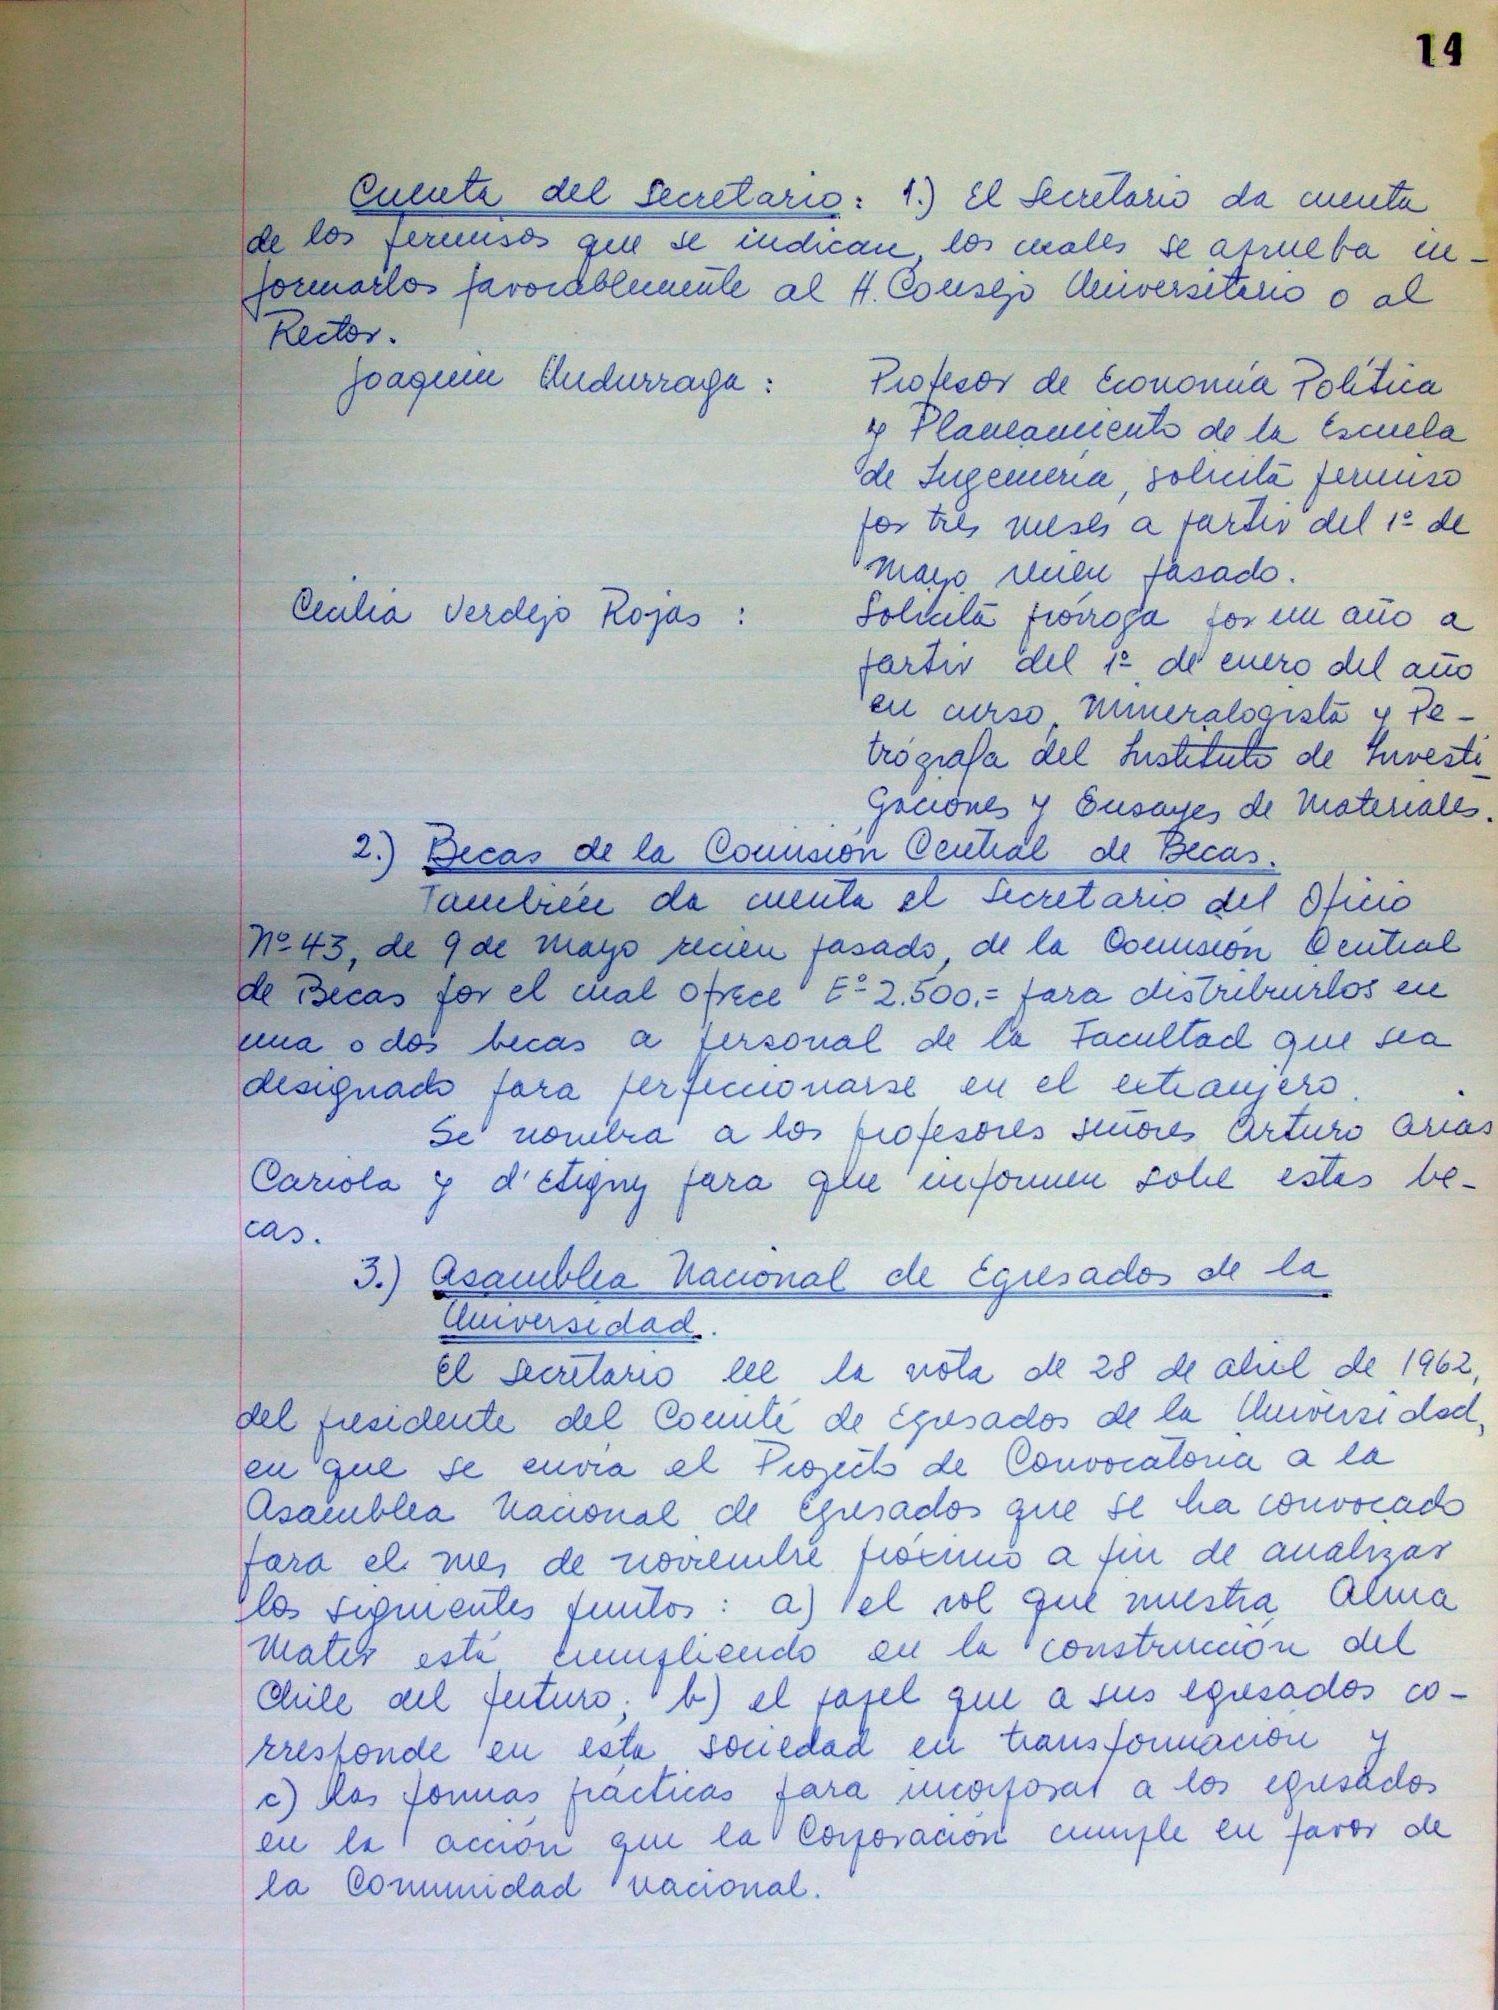 14
Cuenta del Secretario: 1.) El Secretario da cuenta
de los permisos que se indican, los cuales se aprueba in-
formarlos favorablemente al H. Consejo Universitario o al
Rector.
Joaquin Undurraga: Profesor de Economía Política
y Planeamiento de la Escuela
de Ingeniería, solicita permiso
por tres meses a partir del 1º de
Mayo recien pasado.
Cecilia Verdejo Rojas: Solicita prórroga por un año a
partir del 1º de enero del año
en curso, Mineralogista y Pe-
trógrafa del Instituto de Investi-
gaciones y Ensayes de Materiales.
2.) Becas de la Comisión Central de Becas.
También da cuenta el Secretario del Oficio
Nº 43, de 9 de Mayo recien pasado, de la Comisión Central
de Becas por el cual ofrece Eº 2.500.= para distribuirlos en
una o dos becas a personal de la Facultad que sea
designado para perfeccionarse en el extranjero.
Se nombra a los profesores señores Arturo Arias
Cariola y d'Etigny para que informen sobre estas be-
cas.
3.) Asamblea Nacional de Egresados de la
Universidad.
El Secretario lee la nota de 28 de abril de 1962,
del presidente del Comité de Egresados de la Universidad,
en que se envía el Proyecto de Convocatoria a la
Asamblea Nacional de Egresados que se ha convocado
para el mes de noviembre próximo a fin de analizar
los siguientes puntos: a) el rol que nuestra Alma
Mater está cumpliendo en la construcción del
Chile del futuro; b) el papel que a sus egresados co-
rresponde en esta sociedad en transformación y
c) las formas prácticas para incorporar a los egresados
en la acción que la Corporación cumple en favor de
la Comunidad nacional.